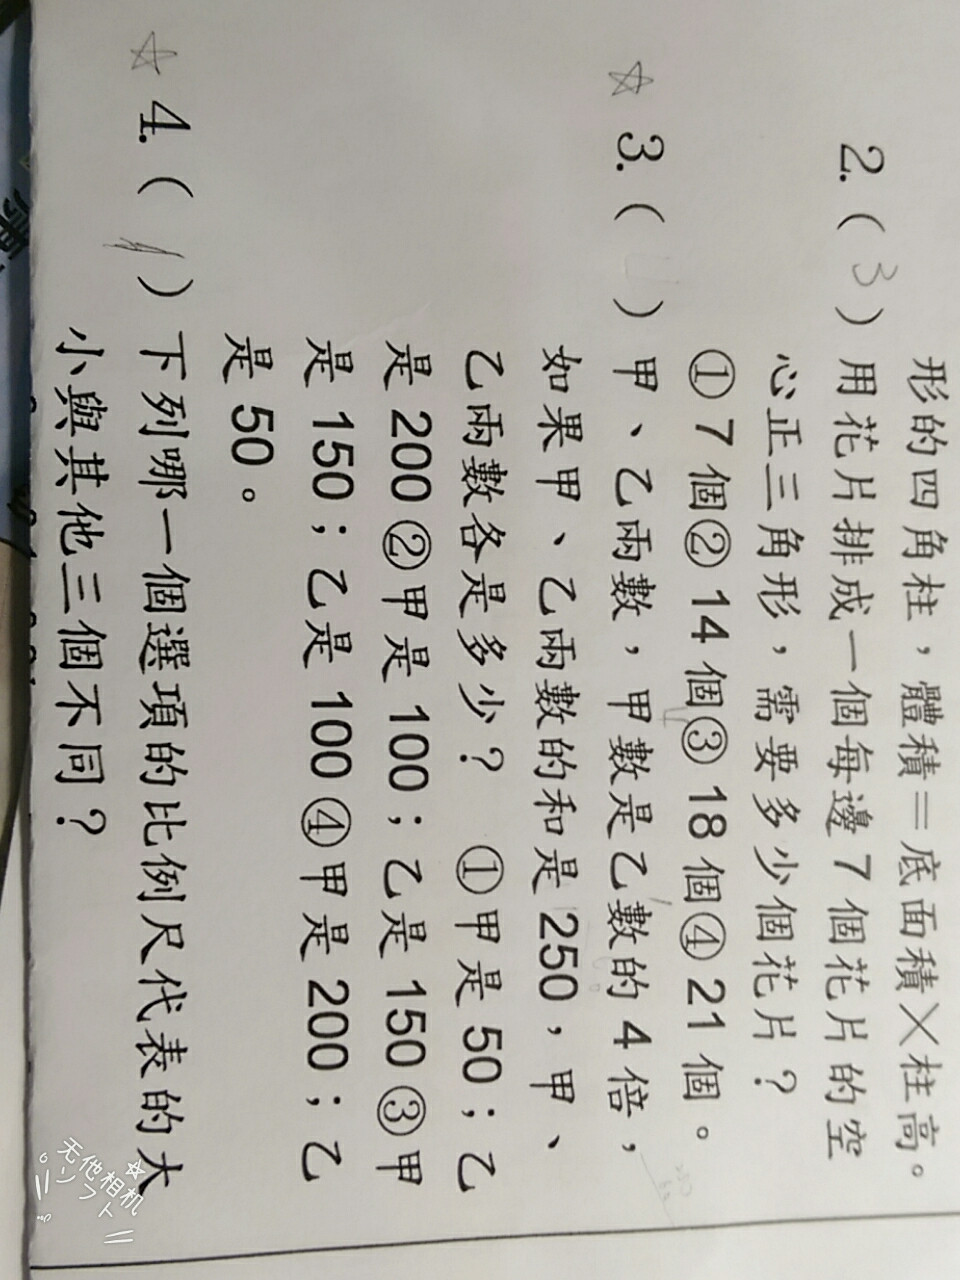 形的四角柱，體積＝底面積×柱高。
2.( 3 )用花片排成一個每邊7個花片的空
心正三角形，需要多少個花片？
①7個②14個③18個④21個。
☆ 3.( )甲、乙兩數，甲數是乙數的4倍，
如果甲、乙兩數的和是250，甲、
乙兩數各是多少？ ①甲是50；乙
是200②甲是100；乙是150③甲
是150；乙是100④甲是200；乙
是50。
☆ 4.( )下列哪一個選項的比例尺代表的大
小與其他三個不同？
无他相机